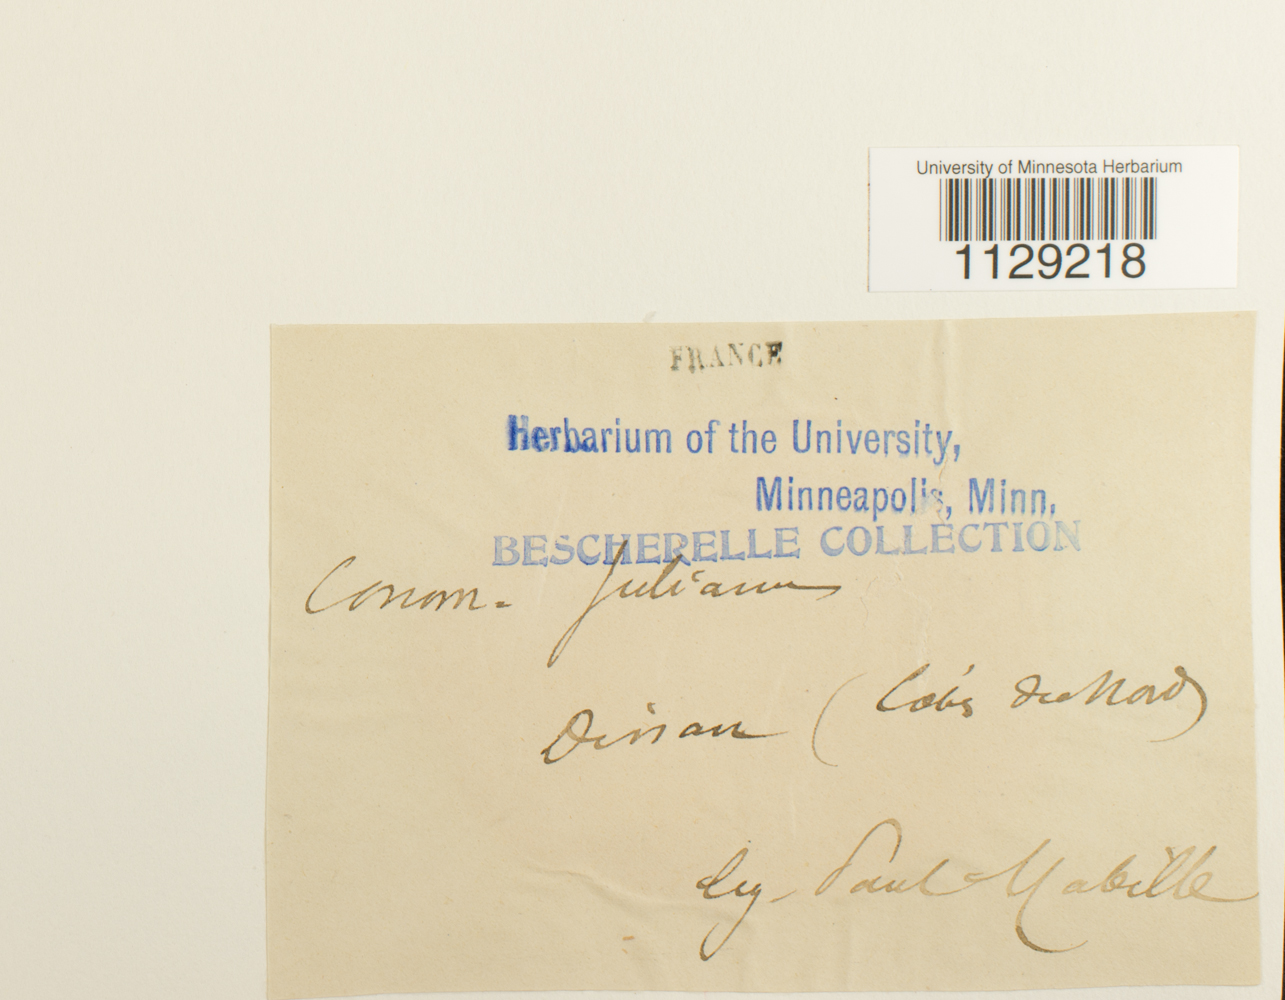 University of Minnesota Herbarium
1129218
FRANCE
Herbarium of the University,
Minneapolis, Minn.
BESCHERELLE COLLECTION
Conom. Julianus
Dinan (Côtes du Nord)
Leg. Paul Mabille